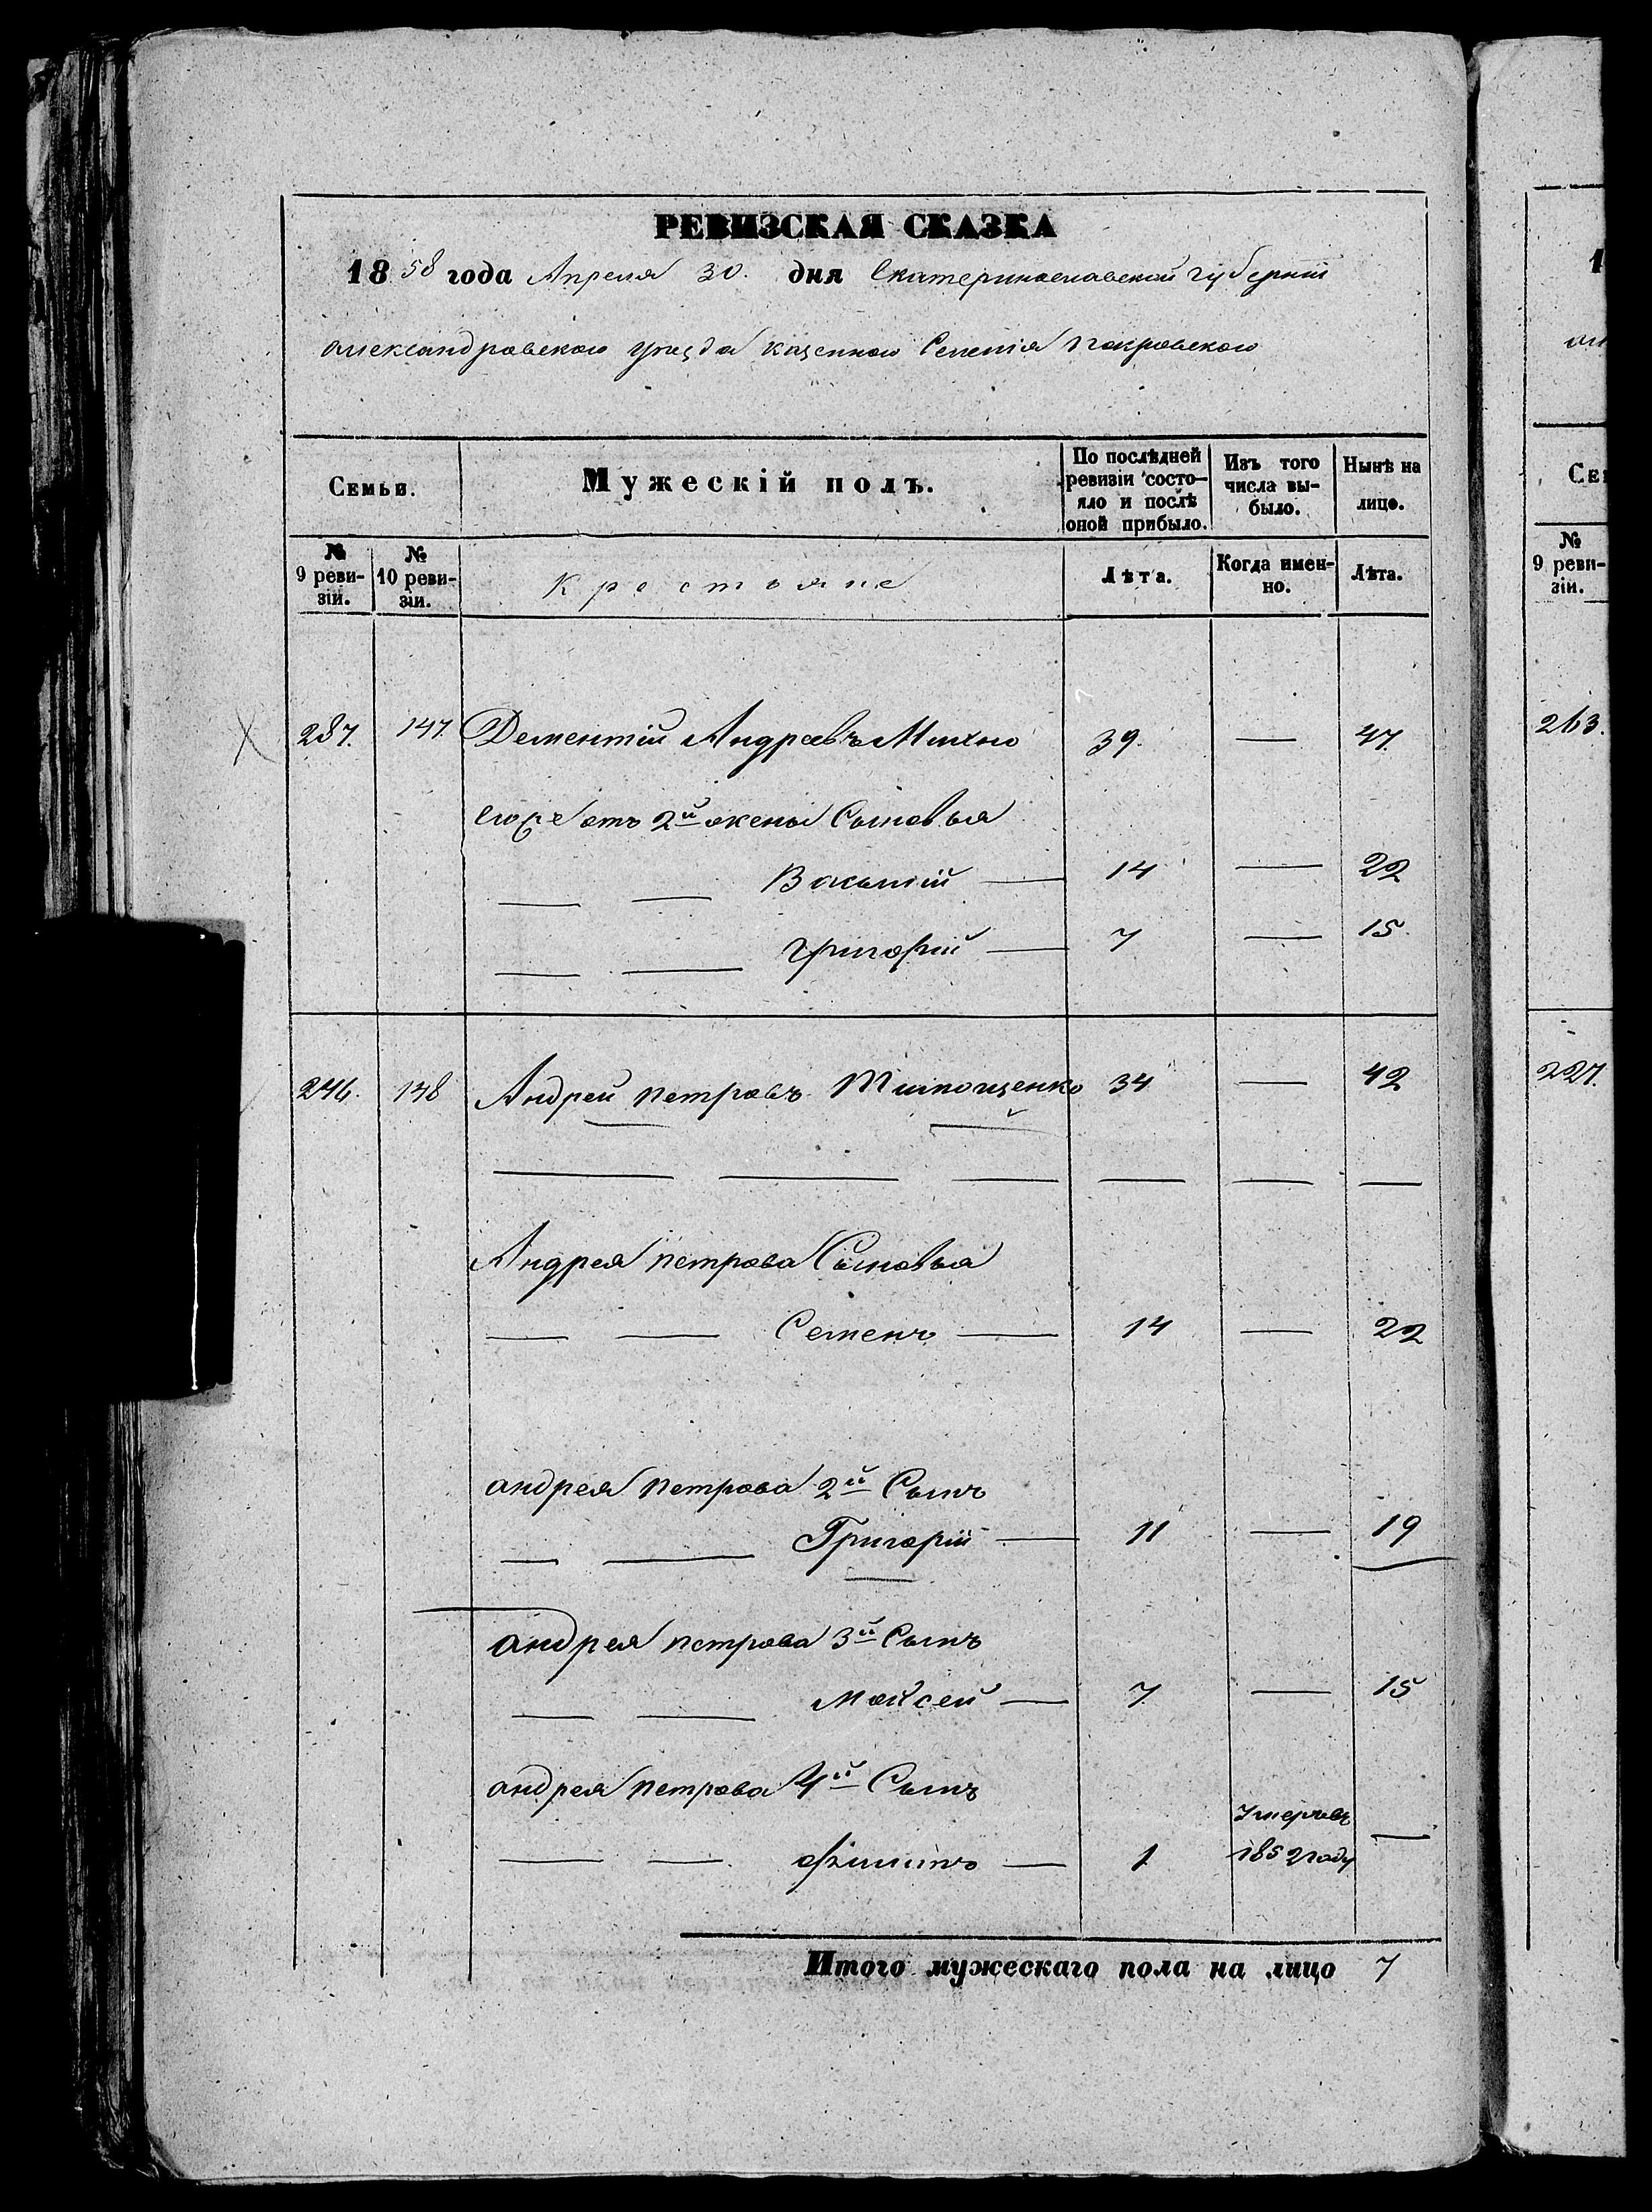 РЕВИЗСКАЯ СКАЗКА
1858 года Апреля 30. дня Екатеринославской губернiи
александровского уезда казенного Селенiя покровского
Семьи.
Мужескiй полъ.
По послѣдней ревизiи состояло и послѣ оной прибыло.
Изъ того числа выбыло.
Нынѣ на лицо.
№ 9 ревизiи.
№ 10 ревизiи.
Крестьяне
Лѣта.
Когда именно.
Лѣта.
287. 147. Дементiй Андреевъ Михно 39. — 47.
его же отъ 2й жены Сыновья
— — Василiй — 14 — 22
— — григорiй — 7 — 15.
246. 148 Андрей петровъ 34 — 42
— — — — — —
Андрея петрова Сыновья
— — Семенъ — 14 — 22
андрея петрова 2й Сынъ
— — Григорiй — 11 — 19
андрея петрова 3й Сынъ
— — Мойсей — 7. — 15
андрея петрова 4й Сынъ
— — филипъ — 1 Умеръ въ 1852 году —
Итого мужескаго пола на лицо 7
1
Се
№ 9 ревизiи.
263.
227.